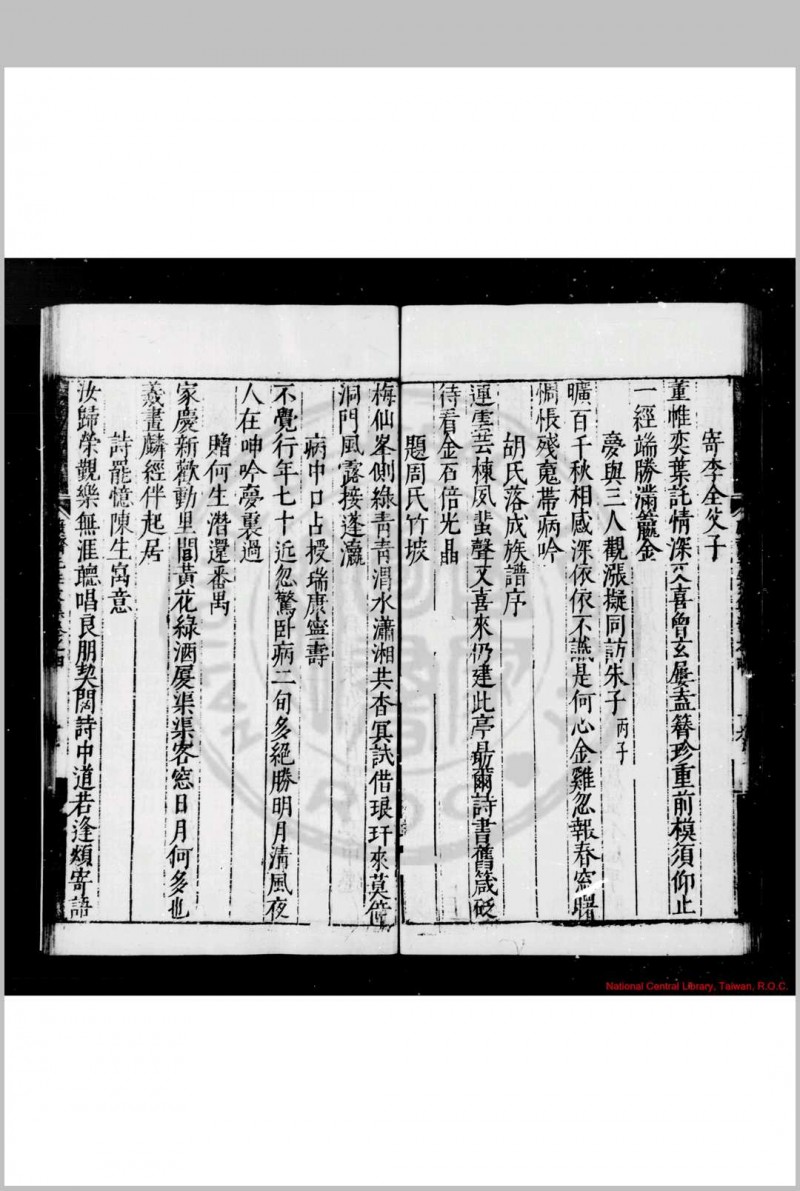 寄李全父子
董帷奕葉託情深文喜曾玄屢盍簪珍重前模須仰止
一經端勝滿籝金
夢與三人觀漲擬同訪朱子丙子
曠百千秋相感深依依不讌是何心金雞忽報春窓曙
惆悵殘䰟帶病吟
胡氏落成族譜序
連雲芸棟夙蜚聲又喜來仍建此亭最爾詩書舊箴砭
待看金石倍光晶
題周氏竹坡
梅仙峯側綠青青渭水瀟湘共杳冥試借琅玕來莫
洞門風露接蓬瀛
病中口占授瑞康寧壽
不覺行年七十近忽驚卧病二旬多絕勝明月清風夜
人在呻吟夢裏過
贈何生潛還番禺
家慶新歡動里閭黃花綠酒廈渠渠客窓日月何多也
羲畫麟經伴起居
詩罷憶陳生寓意
汝歸榮觀樂無涯聽唱良朋契闊詩中道若逢煩寄語
National Central Library, Taiwan, R.O.C.